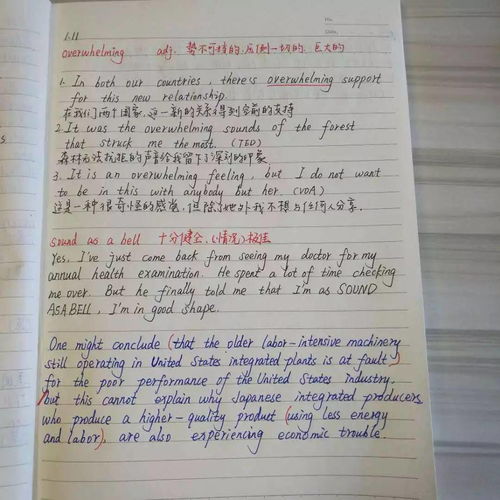 No.
Date.
1.11
overwhelming adj. 势不可挡的.压倒一切的.巨大的
1. In both our countries, there's overwhelming support
for this new relationship.
在我们两个国家,这一新的关系得到空前的支持
2. It was the overwhelming sounds of the forest
that struck me the most. (TED)
森林无法抗拒的声音给我留下了深刻的印象
3. It is an overwhelming feeling, but I do not want
to be in this with anybody but her. (VOA)
这是一种很奇怪的感觉,但除了她外我不想与任何人分享.
sound as a bell 十分健全,(情况)极佳
Yes, I've just come back from seeing my doctor for my
annual health examination. He spent a lot of time checking
me over. But he finally told me that I'm as SOUND
AS A BELL. I'm in good shape.
One might conclude (that the older labor-intensive machinery
still operating in United States integrated plants is at fault)
for the poor performance of the United States industry,
but this cannot explain why Japanese integrated producers
who produce a higher-quality product (using less energy
and labor), are also experiencing economic trouble.